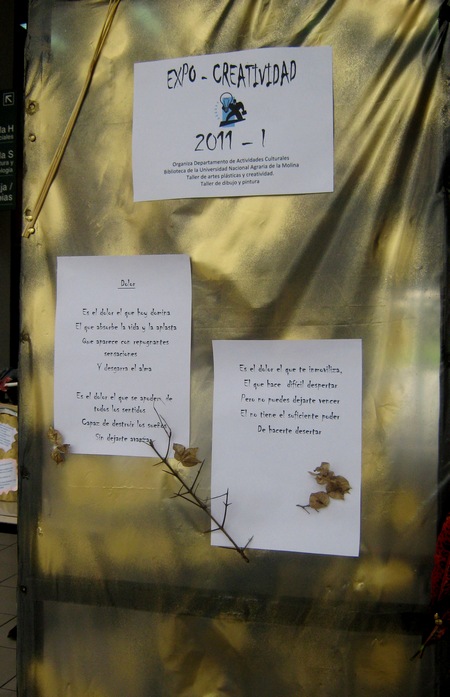 EXPO - CREATIVIDAD
2011 - I
Organiza Departamento de Actividades Culturales
Biblioteca de la Universidad Nacional Agraria de la Molina
Taller de artes plásticas y creatividad.
Taller de dibujo y pintura
Dolor
Es el dolor el que hoy domina
El que absorbe la vida y la aplasta
Que aparece con repugnantes
sensaciones
Y desgarra el alma
Es el dolor el que se apodera de
todos los sentidos
Capaz de destruir los sueños
Sin dejarte avanzar
Es el dolor el que te inmoviliza,
El que hace difícil despertar
Pero no puedes dejarte vencer
El no tiene el suficiente poder
De hacerte desertar